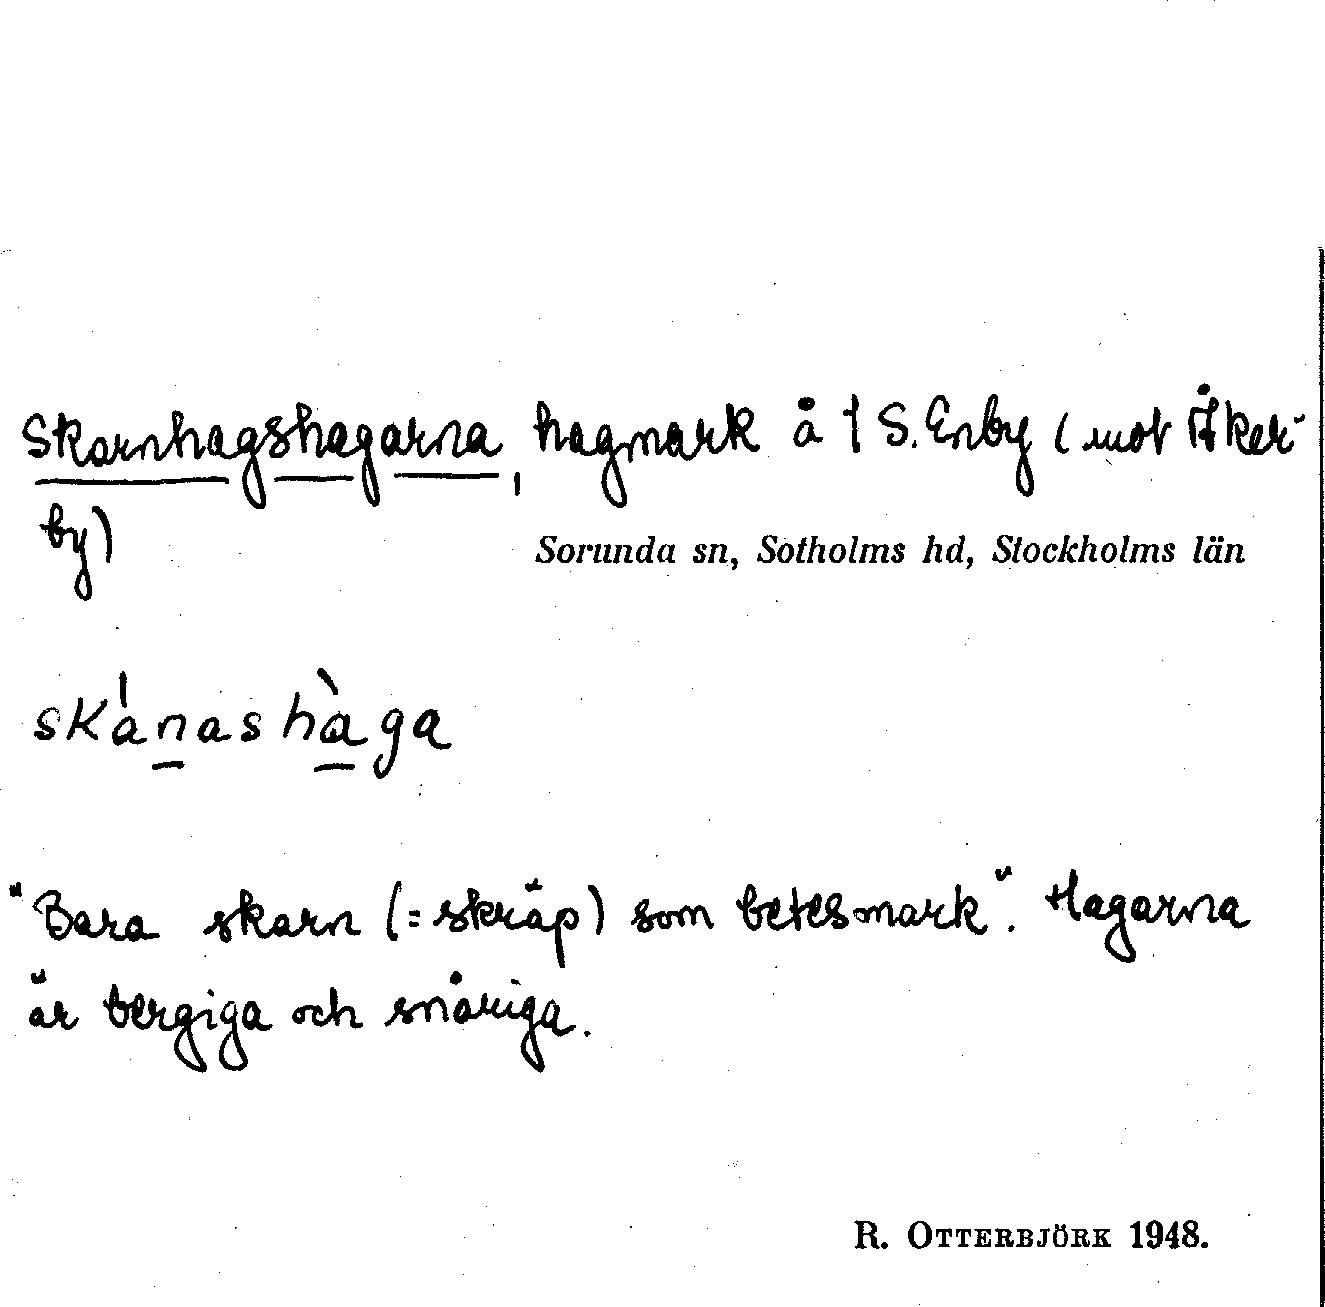 Skarnhagshagarna, hagmark å † S. Enby (mot Åker-
by)
Sorunda sn, Sotholms hd, Stockholms län
skánashàga
"Bara skarn (= skräp) som betesmark". Hagarna
är bergiga och snåriga.
R. OTTERBJÖRK 1948.